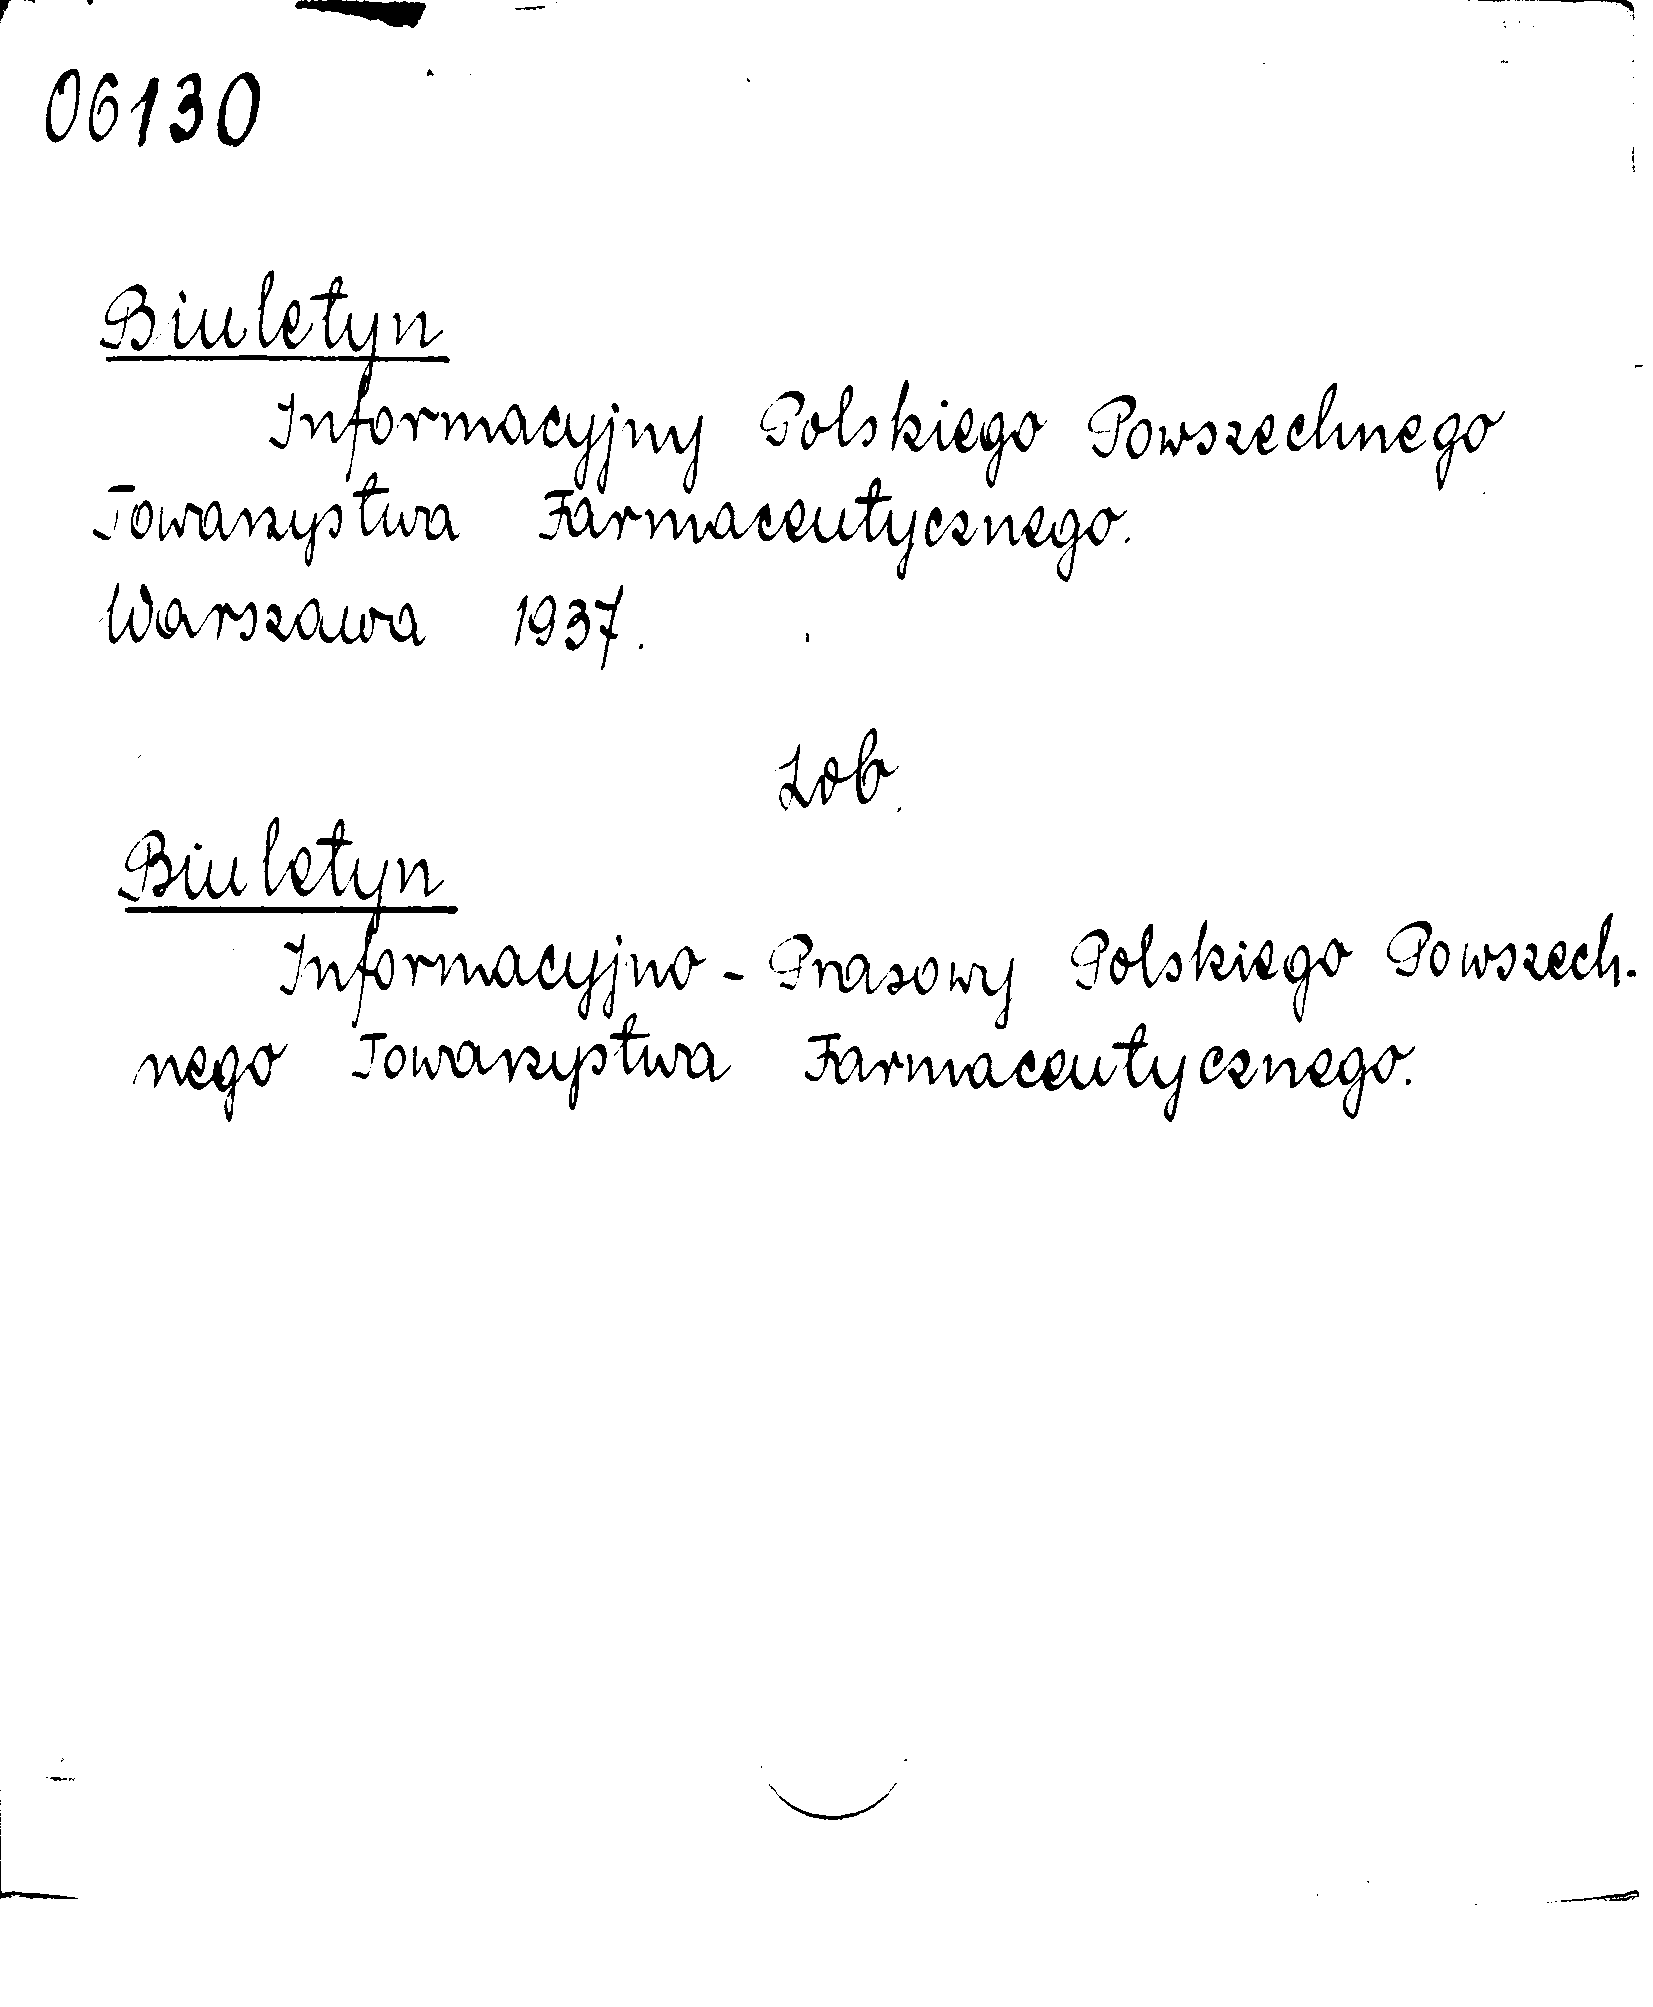 06130
Biuletyn
Informacyjny Polskiego Powszechnego
Towarzystwa Farmaceutycznego.
Warszawa 1937.
Zob.
Biuletyn
Informacyjno - Prasowy Polskiego Powszech-
nego Towarzystwa Farmaceutycznego.